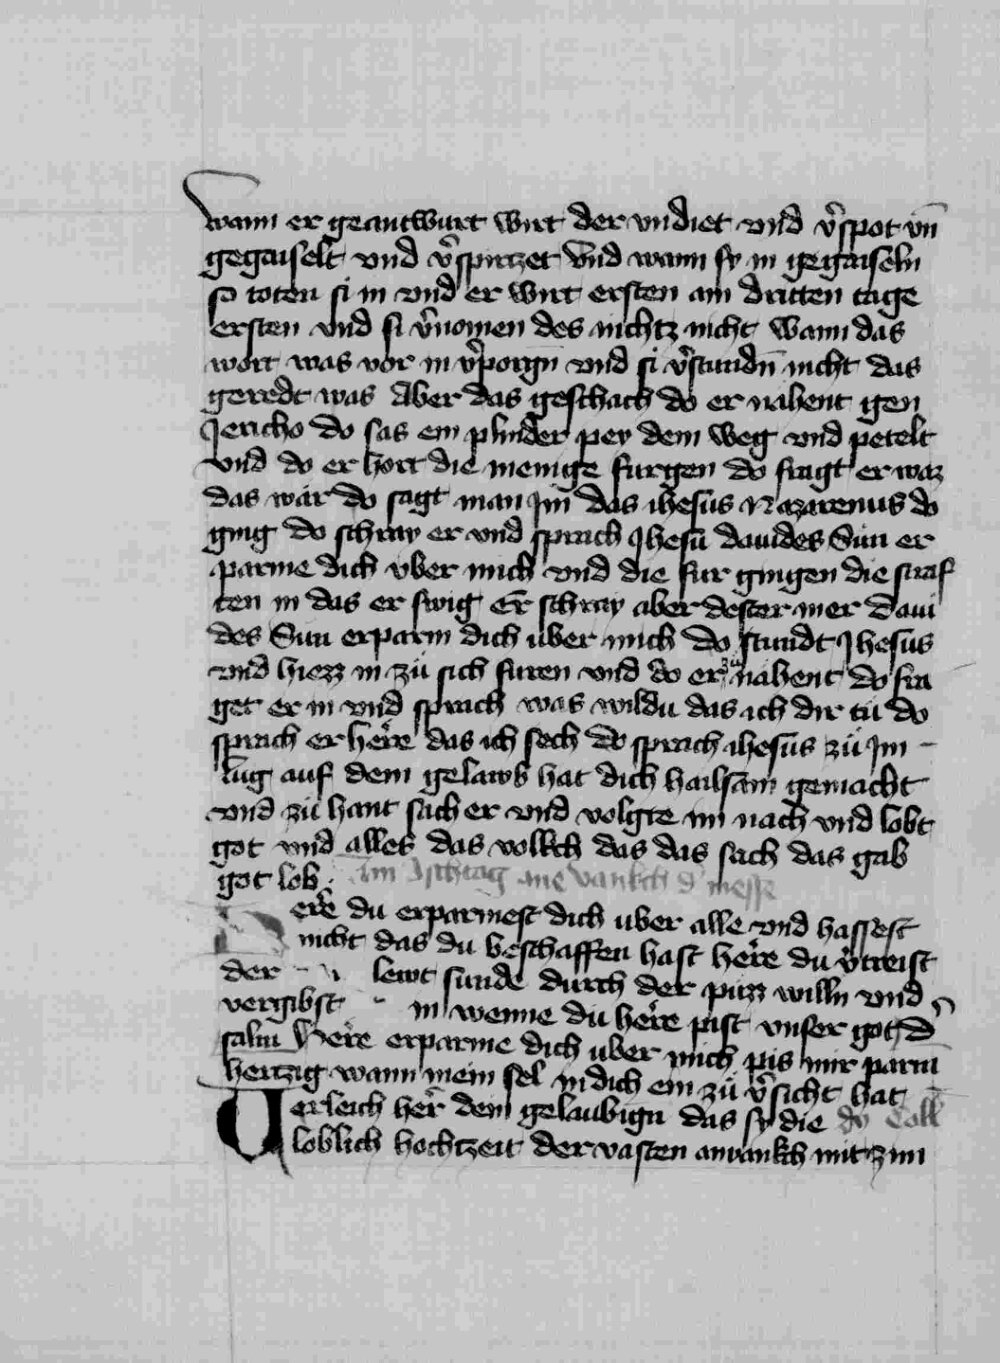 wann er geantwurt wirt der vndiet vnd v̓spot vn̄
gegaiselt vnd v̓spirtzet Vnd wann sy in gegaiseln
so toten si in vnd er wirt ersten am dritten tage
ersten vnd si v̓nomen des nichtz nicht Wann das
wort was vor in v̓porgn̄ vnd si v̓stundn̄ nicht das
geredt was Aber das geschach do er nahent gen
Jericho do sas ein plinder pey dem weg vnd petelt
vnd do er hort die menige furgen do fragt er waz
das wår do sagt man Jm das ihesus Nazarenus do
ging do schray er vnd sprach Jhesu dauides Sun er
parme dich vber mich vnd die fur gingen die straf
ten in das er swig Er schray aber dester mer daui
des Sun erparm dich uber mich do stundt Jhesus
vnd hiezz in zů sich furen vnd do er zů nahent do fra
get er in vnd sprach was wildu das ich dir tů do
sprach er her̓e das ich sech do sprach ihesus zů Jm
lug auf dein gelawb hat dich hailsam gemacht
vnd zů hant sach er vnd volgte im nach vnd lobt
got vnd alles das volkch das das sach das gab
got lob Am Aschtag ane vankch d̓ messe
Her̓e du erparmest dich uber alle vnd hassest
nicht das du beschaffen hast her̓e du v̓treist
der lewt sunde durch der půzz willn vnd
vergibst in wenne du her̓e pist vnser got d̓
salm Her̓e erparme dich uber mich pis mir parm
hertzig wann mein sel in dich ein zů v̓sicht hat
Uerleich her̓ dein gelaubign das sy die dy Coll̄
loblich hochtzeit der vasten anvankch mit zim